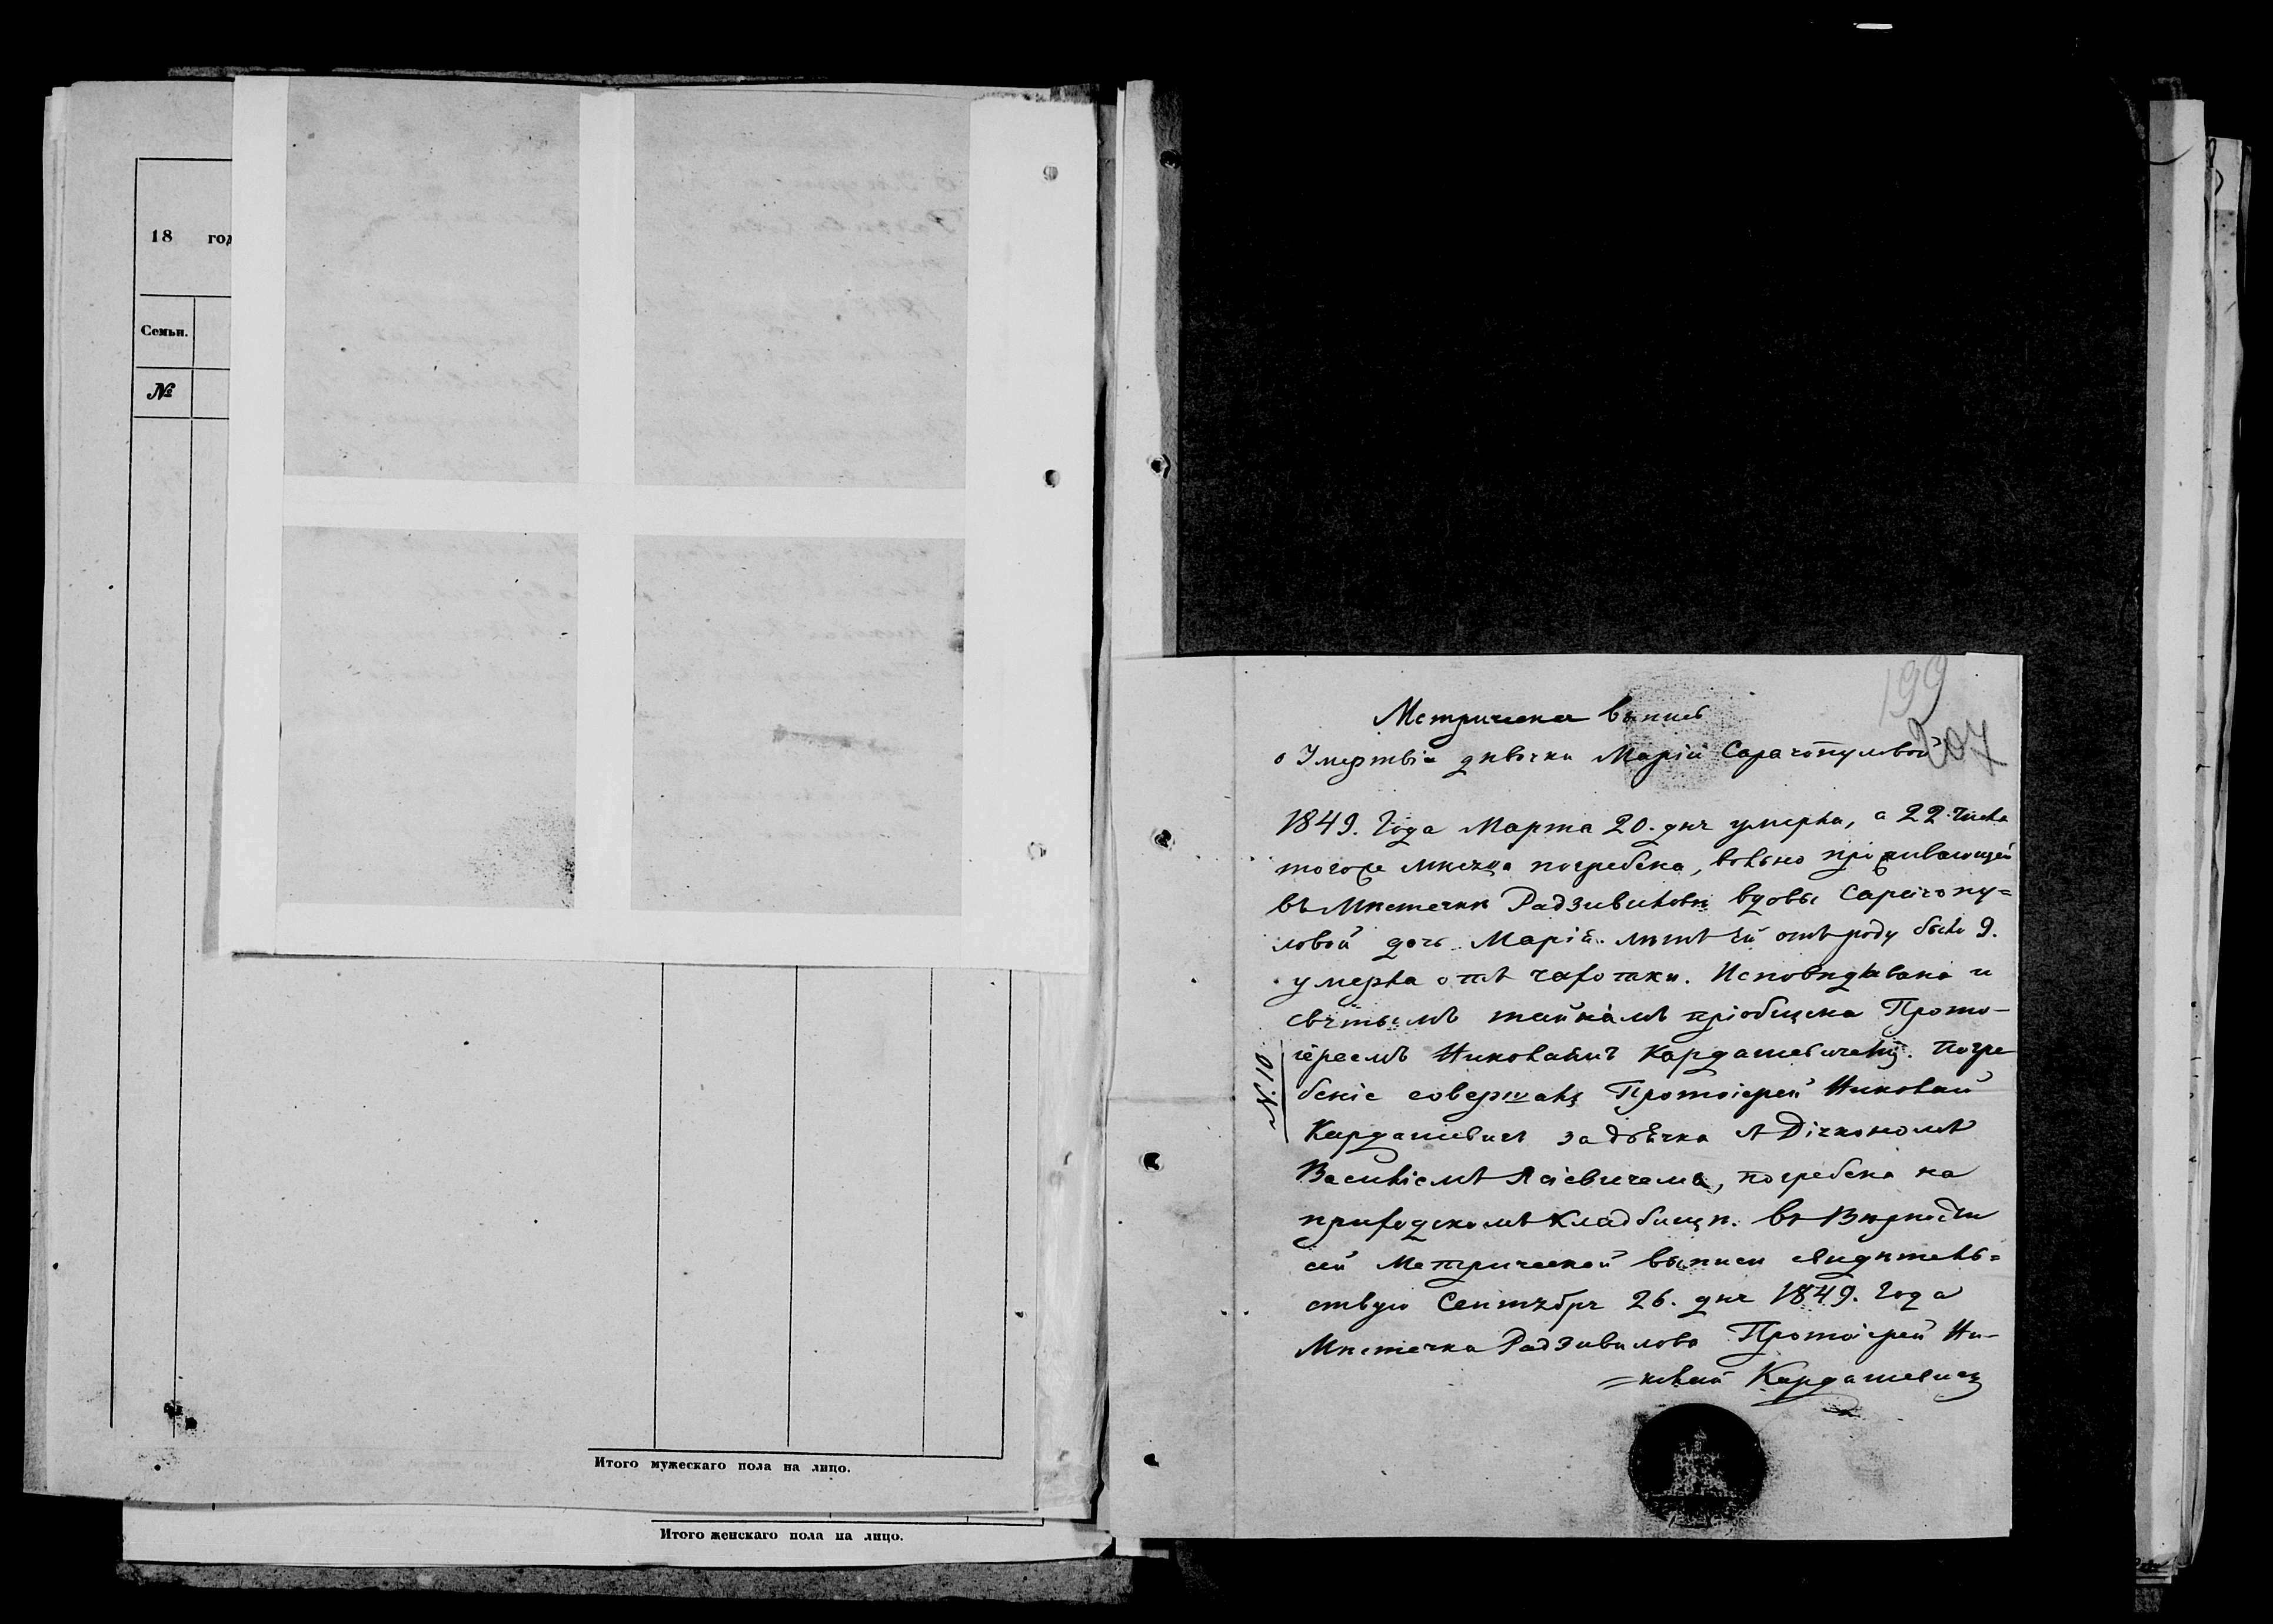 18 год
Семьи.
№
Итого мужескаго пола на лицо.
Итого женскаго пола на лицо.
199
207
Метрическа выпись
о Умертвіи дѣвочки Маріи Сарачопуловой
1849. Года Марта 20. дня умерла, а 22. числа
тогоже мѣсяца погребена, вольно проживающей
въ Мѣстечкѣ Радзивиловѣ вдовы Сарачопу=
ловой дочь Марія. лѣтъ ей отъ роду было 9.
умерла отъ чахотки. Исповѣдывана и
святымъ тайнамъ пріобщена Прото-
іереемъ Николаемъ Кардашевичемъ. Погре
беніе совершалъ Протоіерей Николай
Кардашевичъ за дьячка
Василіемъ, погребена на
приходскомъ кладбищѣ. въ Вѣрности
сей Метрической выписи свидѣтель=
ствую Сентября 26. дня 1849. Года
Мѣстечка Радзивилова Протоіерей Ни-
=колай Кардашевичъ
N. 10